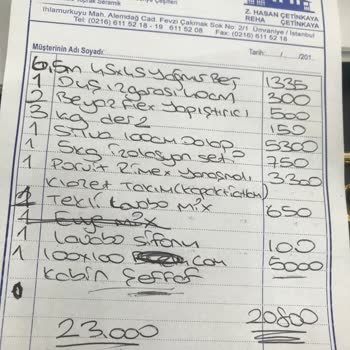 Toprak Seramik
Z. HASAN ÇETİNKAYA
REHA ÇETİNKAYA
Ihlamurkuyu Mah. Alemdağ Cad. Fevzi Çakmak Sok No: 2/1 Ümraniye / İstanbul
Tel: (0216) 611 52 18 - 19 611 52 08 Fax: (0216) 611 52 18
Müşterinin Adı Soyadı: Tarih: / /201
6,5m 45x45 yağmur Ser 1335
1 Duş ızgarası 40cm 300
2 Beyaz flex yapıştırıcı 500
3 kg derz 150
1 100cm Dolap 5300
1 5kg izolasyon seti 750
1 Rimex yanaşmalı 3300
Klozet Takım (kapak dahil)
1 Tekli Lavabo mix 650
1 Lavabo Sifonu 100
1 100x100 cam 5000
Kabin Şeffaf
20800
23.000